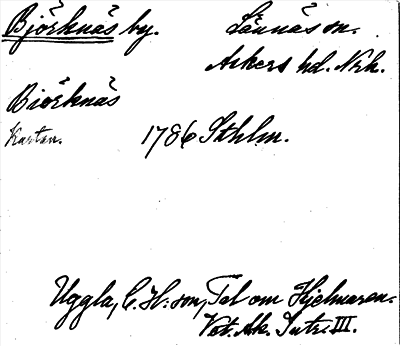 Björknäs by. Lännäs sn.
Askers hd. Nrk.
Biörknäs
Kartan. 1786 Sthlm.
Uggla, C. H:son, Tal om Hjelmaren.
Vet. Ak. Intr. III.